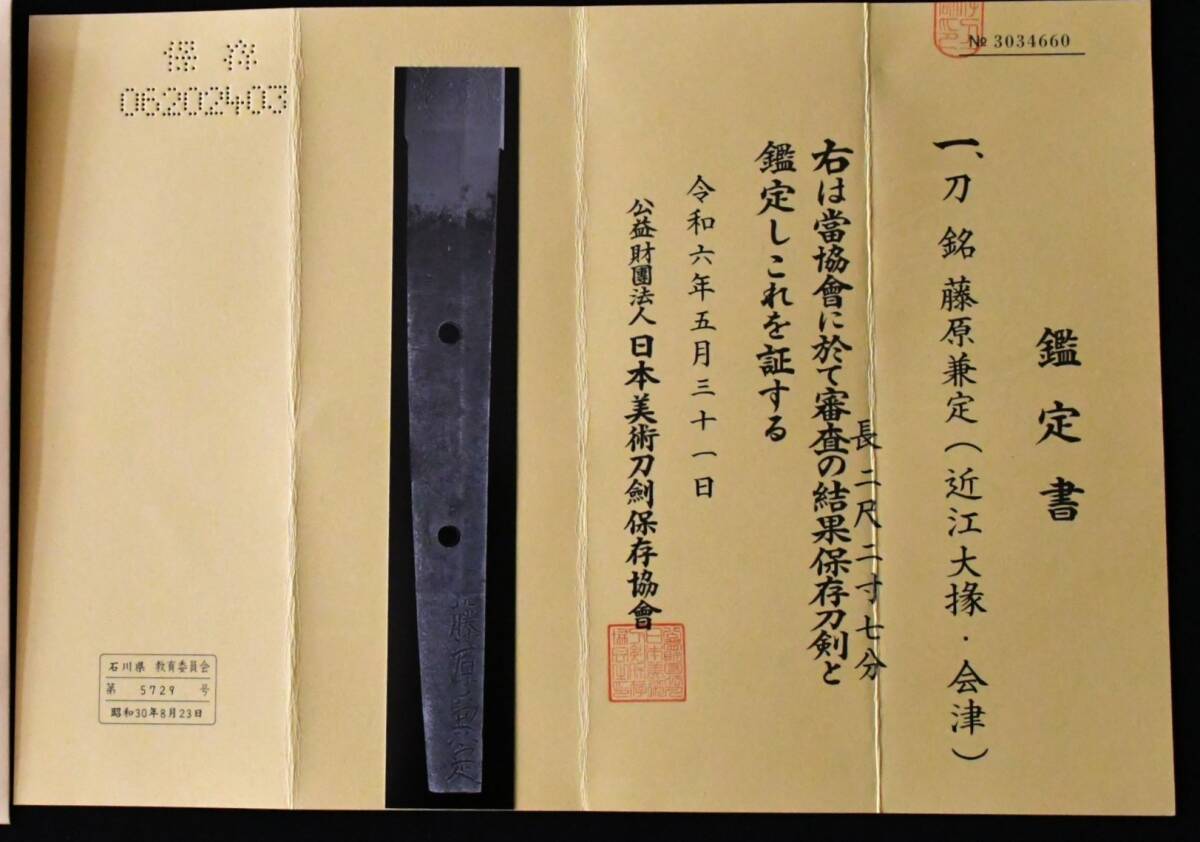 № 3034660
鑑定書
一、刀 銘 藤原兼定(近江大掾・会津)
長二尺二寸七分
右は當協會に於て審査の結果保存刀剣と
鑑定しこれを証する
令和六年五月三十一日
公益財團法人 日本美術刀劍保存協會
藤原兼定
保存
06202403
石川県 教育委員会
第 5729 号
昭和30年8月23日